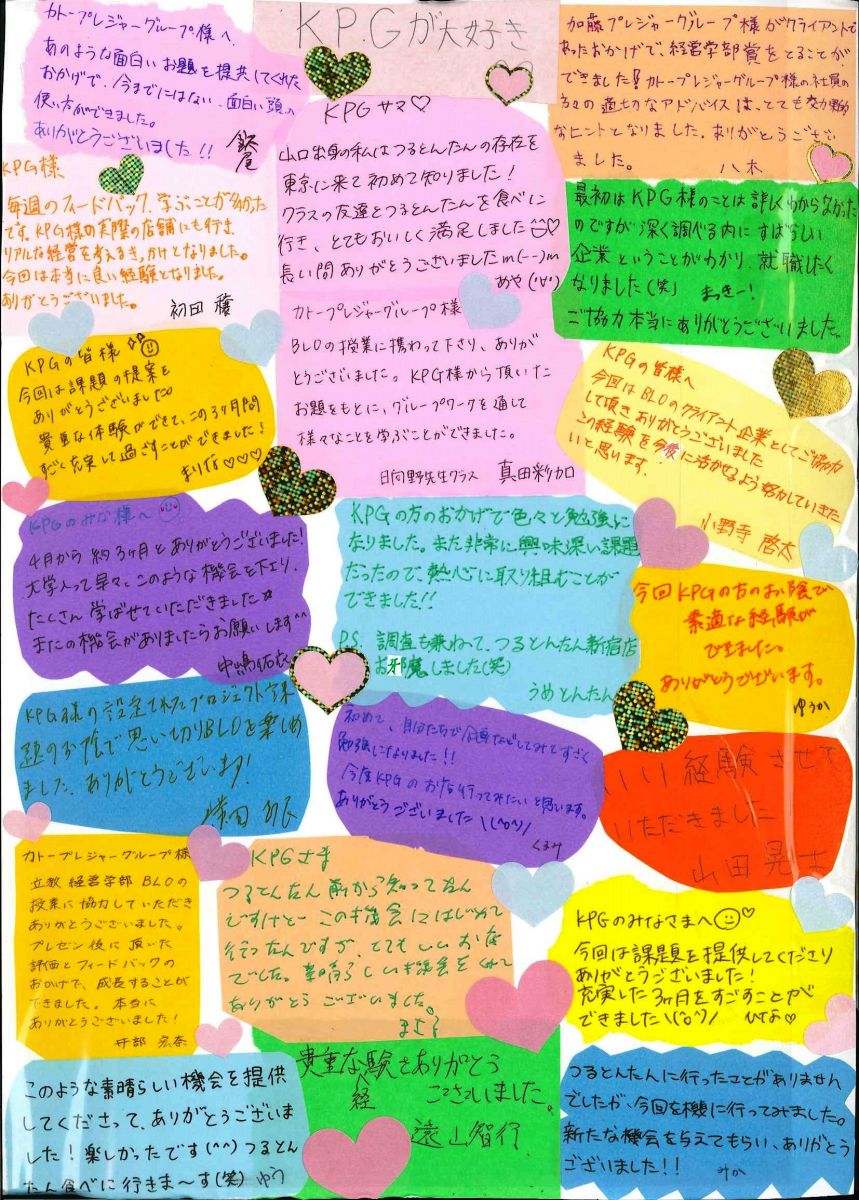 KPGが大好き
カトープレジャーグループ様へ
あのような面白いお題を提供してくれた
おかげで、今までにはない、面白い頭の
使い方ができました。
ありがとうございました!!
加藤プレジャーグループ様がクライアントで
あったおかげで、経営学部賞をとることが
できました!カトープレジャーグループ様の社員の
方々の適切なアドバイスは、とても効果的
なヒントとなりました。ありがとうござい
ました。
八木
KPG様
毎週のフィードバック、学ぶことが多かった
です。KPG様の実際の店舗にも行き、
リアルな経営を考えるきっかけとなりました。
今回は本当に良い経験となりました。
ありがとうございました。
初田 穣
KPGサマ♡
山口出身の私はつるとんたんの存在を
東京に来て初めて知りました!
クラスの友達とつるとんたんを食べに
行き、とてもおいしく満足しました
長い間ありがとうございましたm(--)m
あや
最初はKPG様のことは詳しくわからなかった
のですが深く調べる内にすばらしい
企業ということがわかり、就職したく
なりました(笑)
まっきー!
ご協力本当にありがとうございました。
カトープレジャーグループ様
BLOの授業に携わって下さり、ありが
とうございました。KPG様から頂いた
お題をもとに、グループワークを通して
様々なことを学ぶことができました。
日向野先生クラス 真田彩加
KPGの皆様
今回は課題の提案を
ありがとうございました。
貴重な体験ができて、この3ヶ月間
すごく充実して過ごすことができました!
まりな♡♡♡
KPGの皆様へ
今回はBLOのクライアント企業としてご協力
して頂きありがとうございました
この経験を今後に活かせるよう努力していきた
いと思います。
小野寺 啓太
KPGのみな様へ
4月から約3ヶ月とありがとうございました!
大学入って早々、このような機会を下さり、
たくさん学ばせていただきました☆
またの機会がありましたらお願いします^^
中嶋佑衣
KPGの方のおかげで色々と勉強に
なりました。また非常に興味深い課題
だったので、熱心に取り組むことが
できました!!
P.S. 調査も兼ねて、つるとんたん新宿店
お邪魔しました(笑)
うめとんたん
今回KPGの方のお陰で
素適な経験が
できました。
ありがとうございます。
ゆうか
KPG様の設定されたプロジェクト課
題のお陰で思い切りBLOを楽しめ
ました、ありがとうございます!
初めて、自分たちで企画などしてみてすごく
勉強になりました!!
今度KPGのお店行ってみたいと思います。
ありがとうございました\(^o^)/
くるみ
いい経験させて
いただきました
山田晃士
カトープレジャーグループ様
立教経営学部BLOの
授業に協力していただき
ありがとうございました。
プレゼン後に頂いた
評価とフィードバックの
おかげで、成長することが
できました。本当に
ありがとうございました!
KPGさま
つるとんたん前から知ってたん
ですけどーこの機会にはじめて
行ったんですが、とてもいいお店
でした。素晴らしい機会をくれて
ありがとうございました。
KPGのみなさまへ
今回は課題を提供してくださり
ありがとうございました!
充実した3ヶ月をすごすことが
できました\(^o^)/
ひなお♡
このような素晴らしい機会を提供
してくださって、ありがとうございま
した!楽しかったです(^^)つるとん
たん食べに行きま〜す(笑) ゆう
貴重な経験をありがとう
ございました。
遠山智行
つるとんたんに行ったことがありません
でしたが、今回を機に行ってみました。
新たな機会を与えてもらい、ありがとう
ございました!! みか